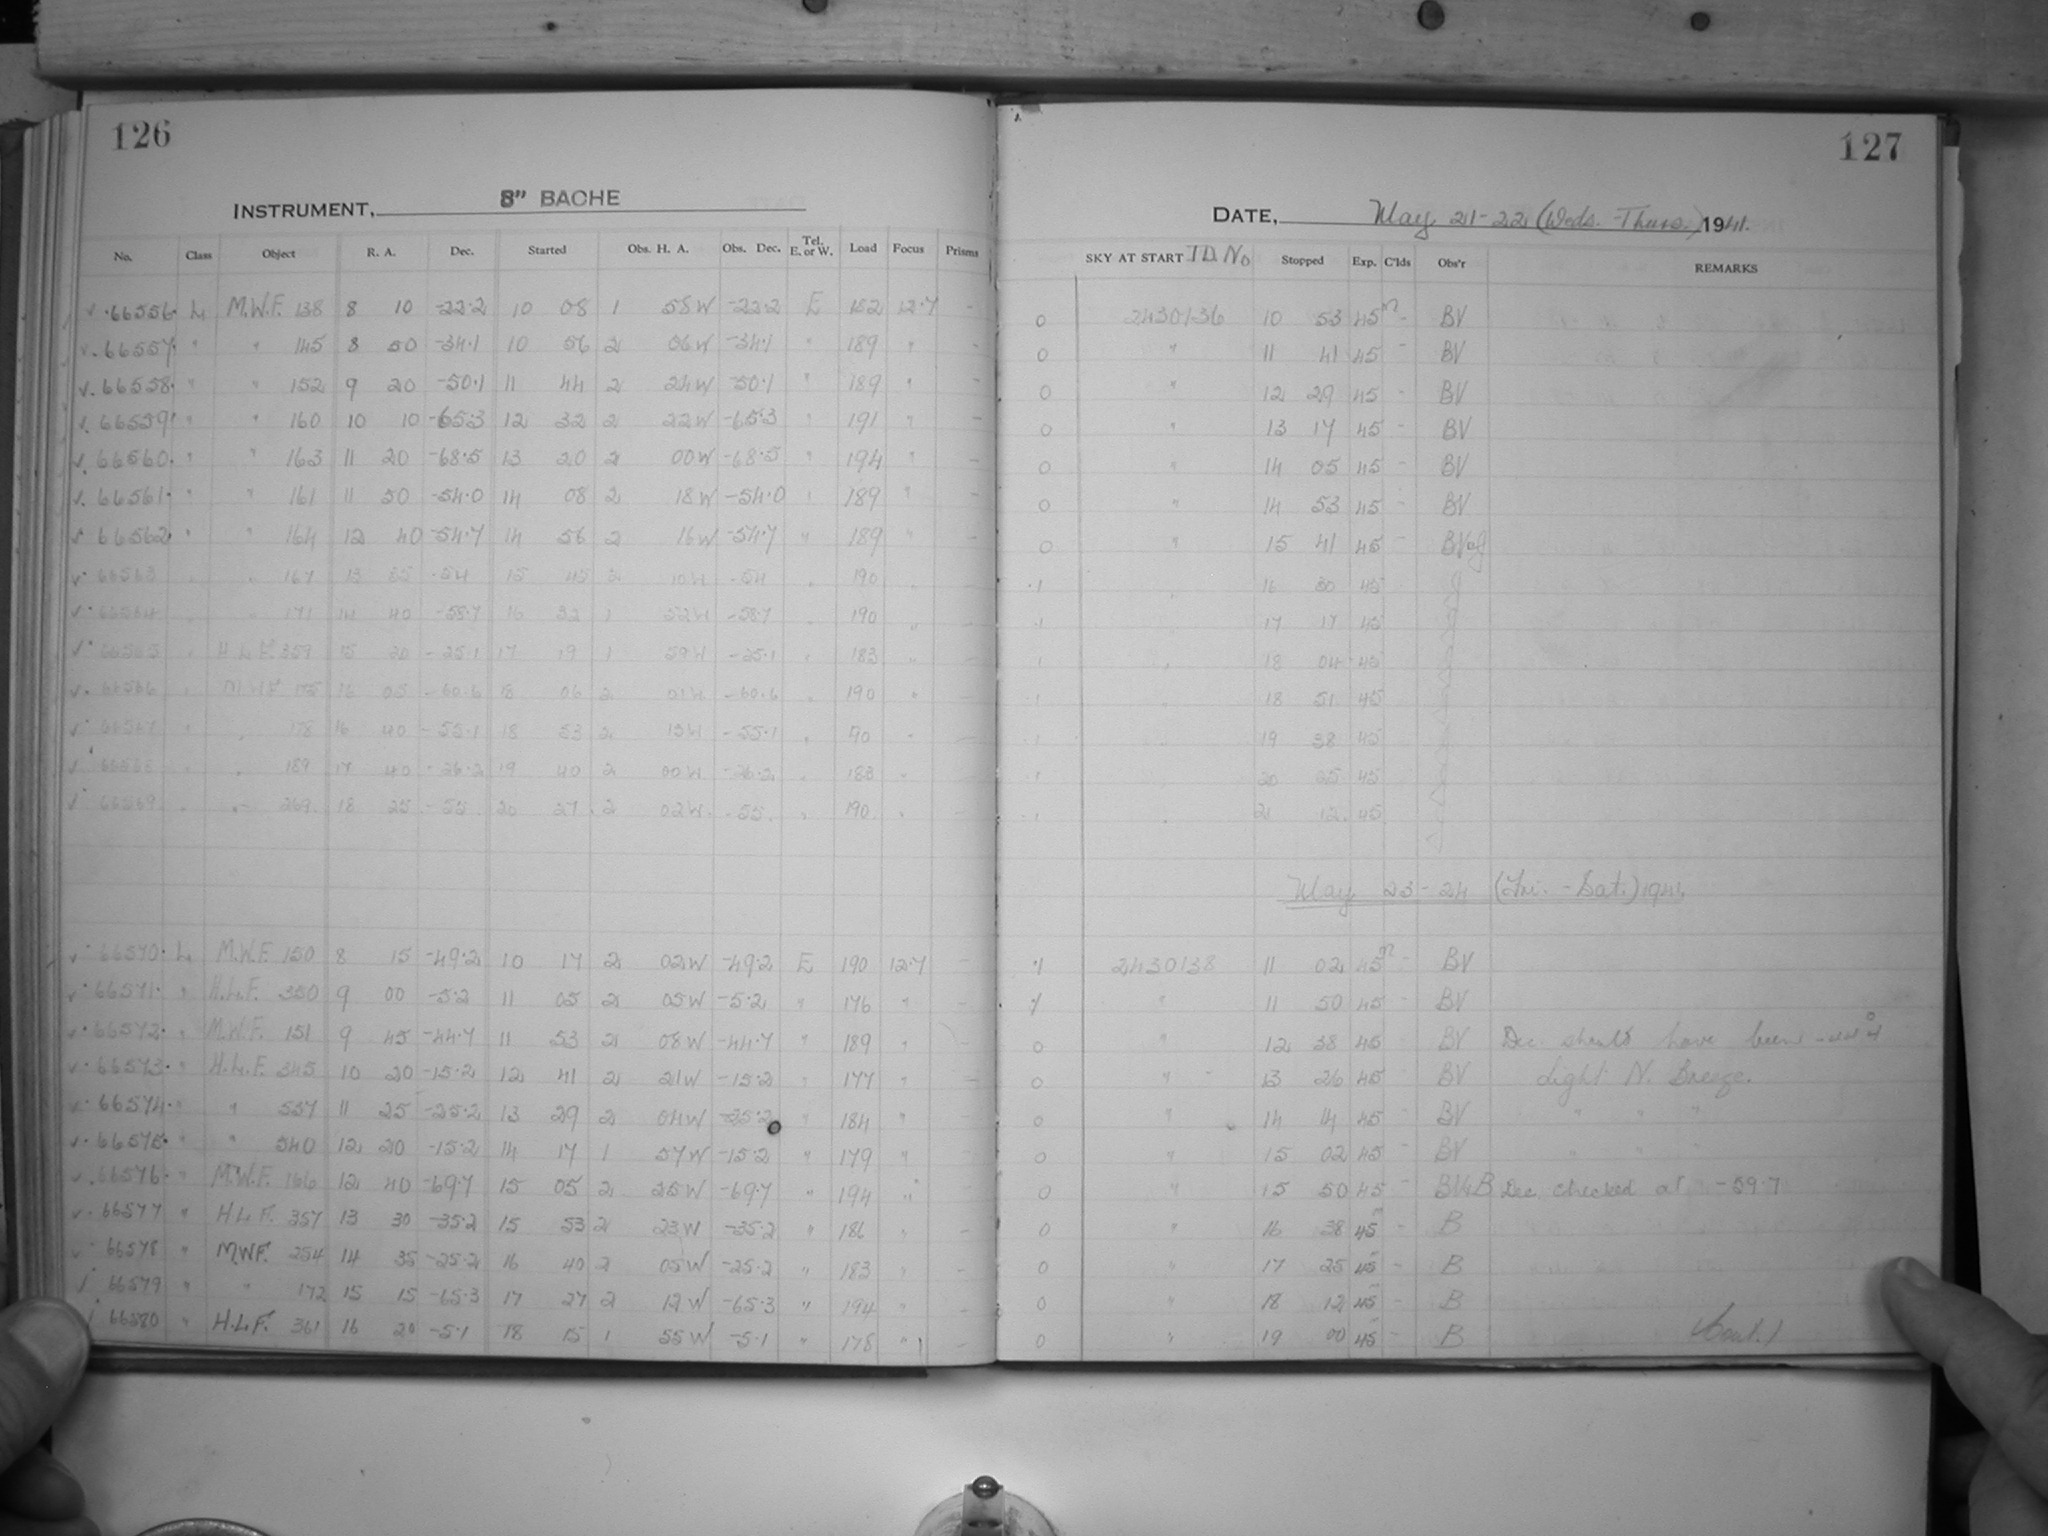 126
INSTRUMENT, 8" BACHE
No. Class Object R. A. Dec. Started Obs. H. A. Obs. Dec. Tel. E. or W. Load Focus Prisms
66556 L M.W.F. 138 8 10 -22.2 10 08 1 58W -22.2 E 182 12.7 -
66557 " " 145 8 50 -34.1 10 56 2 06W -34.1 " 189 " -
66558 " " 152 9 20 -50.1 11 44 2 24W -50.1 " 189 " -
66559 " " 160 10 10 -65.3 12 32 2 22W -65.3 " 191 " -
66560 " " 163 11 20 -68.5 13 20 2 00W -68.5 " 194 " -
66561 " " 161 11 50 -54.0 14 08 2 18W -54.0 " 189 " -
66562 " " 164 12 40 -54.7 14 56 2 16W -54.7 " 189 " -
66563 " " 167 13 35 -54 15 45 2 10W -54 " 190 " -
66564 " " 171 14 40 -58.7 16 32 1 52W -58.7 " 190 " -
66565 " H.L.F. 359 15 20 -25.1 17 19 1 59W -25.1 " 183 " -
66566 " M.W.F. 175 16 05 -60.6 18 06 2 01W -60.6 " 190 " -
66567 " " 178 16 40 -55.1 18 53 2 13W -55.1 " 190 " -
66568 " " 189 17 40 -26.2 19 40 2 00W -26.2 " 183 " -
66569 " " 269 18 25 -55 20 27 2 02W -55 " 190 " -
66570 L M.W.F. 150 8 15 -49.2 10 17 2 02W -49.2 E 190 12.7 -
66571 " H.L.F. 350 9 00 -5.2 11 05 2 05W -5.2 " 176 " -
66572 " M.W.F. 151 9 45 -44.7 11 53 2 08W -44.7 " 189 " -
66573 " H.L.F. 345 10 20 -15.2 12 41 2 21W -15.2 " 177 " -
66574 " " 537 11 25 -25.2 13 29 2 04W -25.2 " 184 " -
66575 " " 540 12 20 -15.2 14 17 1 57W -15.2 " 179 " -
66576 " M.W.F. 166 12 40 -69.7 15 05 2 25W -69.7 " 194 " -
66577 " H.L.F. 357 13 30 -35.2 15 53 2 23W -35.2 " 186 " -
66578 " M.W.F. 254 14 35 -25.2 16 40 2 05W -25.2 " 183 " -
66579 " " 172 15 15 -65.3 17 27 2 12W -65.3 " 194 " -
66580 " H.L.F. 361 16 20 -5.1 18 15 1 55W -5.1 " 178 "
127
DATE, May 21-22 (Weds.-Thurs.) 1941.
SKY AT START J.D. No Stopped Exp. C'lds Obs'r REMARKS
0 2430136 10 53 45m - BV
0 " 11 41 45 - BV
0 " 12 29 45 - BV
0 " 13 17 45 - BV
0 " 14 05 45 - BV
0 " 14 53 45 - BV
0 " 15 41 45 -
.1 " 16 30 45
.1 " 17 17 45
.1 " 18 04 45
.1 " 18 51 45
.1 " 19 38 45
.1 " 20 25 45
.1 " 21 12 45
May 23-24 (Fri.-Sat.) 1941
.1 2430138 11 02 45m - BV
.1 " 11 50 45 - BV
0 " 12 38 45 - BV Dec. should have been
0 " 13 26 45 - BV Light N. Breeze.
0 " 14 14 45 - BV " " "
0 " 15 02 45 - BV " " "
0 " 15 50 45 - BV&B Dec. checked at -59.7
0 " 16 38 45 - B
0 " 17 25 45 - B
0 " 18 12 45 - B
0 " 19 00 45 - B (Cont.)